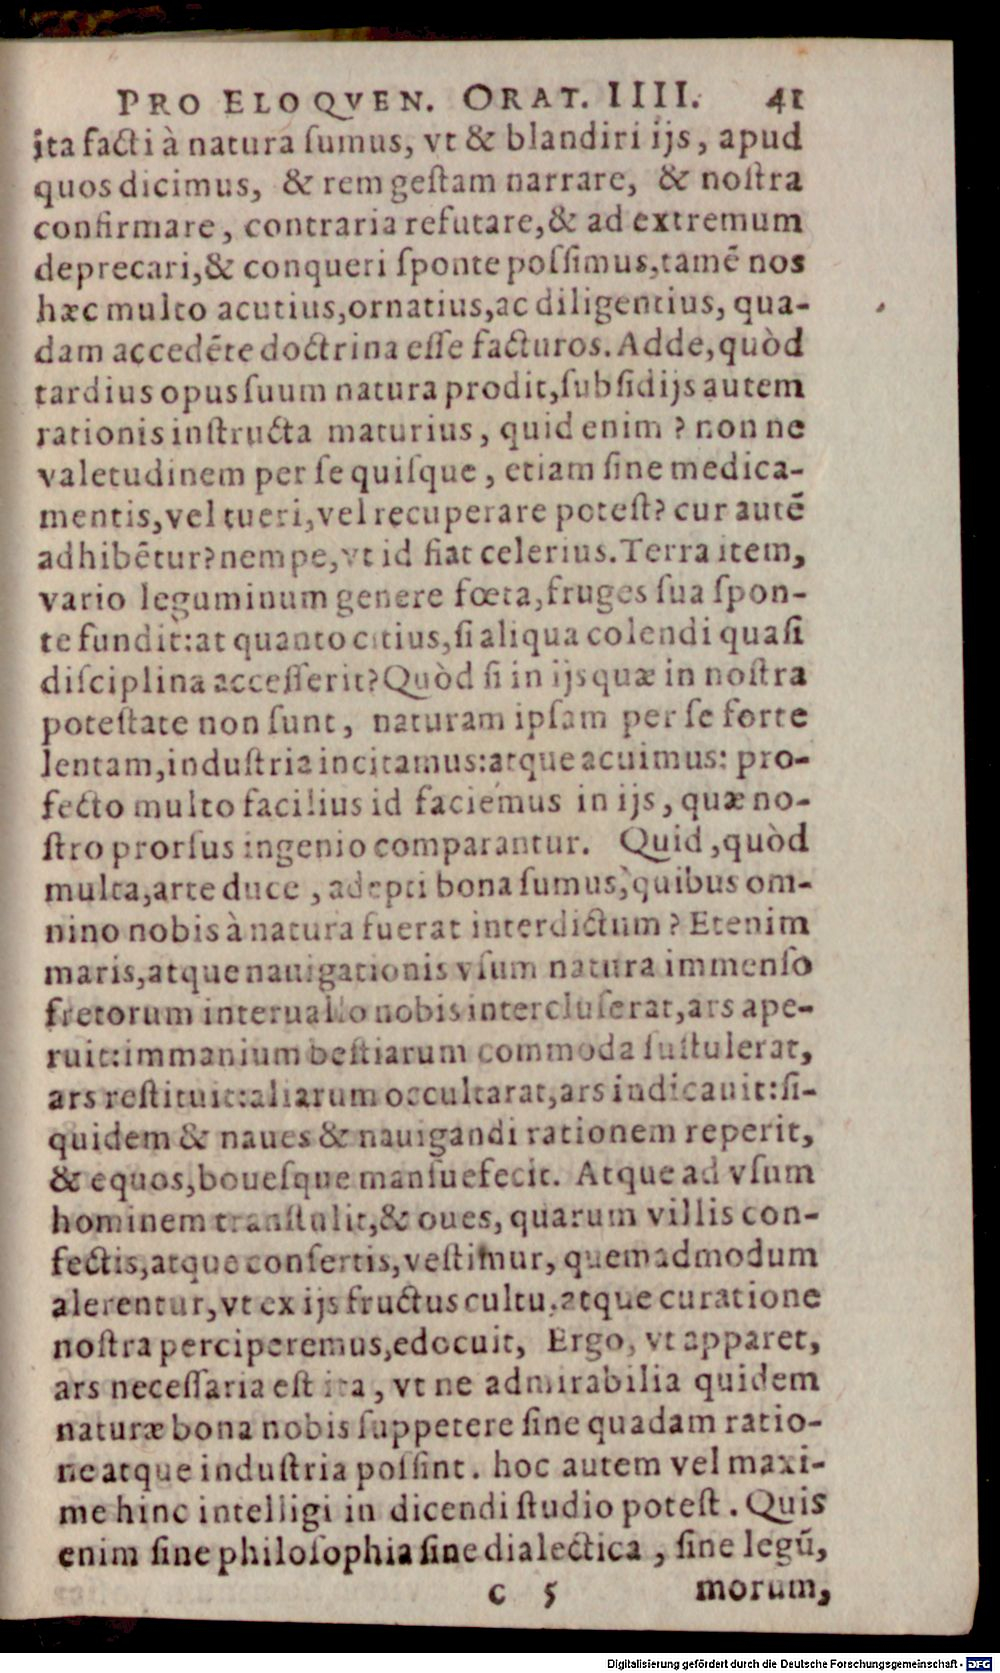 PRO ELOQVEN. ORAT. IIII. 41
ita facti à natura ſumus, vt & blandiri ijs, apud
quos dicimus, & rem geſtam narrare, & noſtra
confirmare, contraria refutare, & ad extremum
deprecari, & conqueri ſponte poſſimus, tamē nos
hæc multo acutius, ornatius, ac diligentius, qua-
dam accedēte doctrina eſſe facturos. Adde, quòd
tardius opus ſuum natura prodit, ſubſidijs autem
rationis inſtructa maturius, quid enim? non ne
valetudinem per ſe quiſque, etiam ſine medica-
mentis, vel tueri, vel recuperare poteſt? cur autē
adhibētur? nempe, vt id fiat celerius. Terra item,
vario leguminum genere fœta, fruges ſua ſpon-
te fundit: at quanto citius, ſi aliqua colendi quaſi
diſciplina acceſſerit? Quòd ſi in ijs quæ in noſtra
poteſtate non ſunt, naturam ipſam per ſe forte
lentam, induſtria incitamus: atque acuimus: pro-
fecto multo facilius id faciemus in ijs, quæ no-
ſtro prorſus ingenio comparantur. Quid, quòd
multa, arte duce, adepti bona ſumus, quibus om-
nino nobis à natura fuerat interdictum? Etenim
maris, atque nauigationis vſum natura immenſo
fretorum interuallo nobis intercluſerat, ars ape-
ruit: immanium beſtiarum commoda ſuſtulerat,
ars reſtituit: aliarum occultarat, ars indicauit: ſi-
quidem & naues & nauigandi rationem reperit,
& equos, boueſque manſuefecit. Atque ad vſum
hominem tranſtulit, & oues, quarum villis con-
fectis, atque conſertis, veſtimur, quemadmodum
alerentur, vt ex ijs fructus cultu, atque curatione
noſtra perciperemus, edocuit, Ergo, vt apparet,
ars neceſſaria eſt ita, vt ne admirabilia quidem
naturæ bona nobis ſuppetere ſine quadam ratio-
ne atque induſtria poſſint. hoc autem vel maxi-
me hinc intelligi in dicendi ſtudio poteſt. Quis
enim ſine philoſophia ſine dialectica, ſine legū,
c 5 morum,
Digitalisierung gefördert durch die Deutsche Forschungsgemeinschaft - DFG